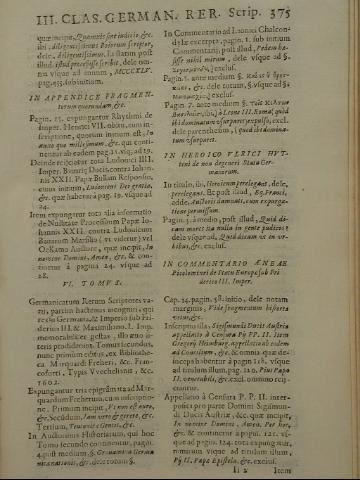 III. CLAS. GERMAN. RER. Scrip. 375
quæ incipit, Quamvis sint indicia, &c.
ibi, diligentissimus Poëtarum scriptor,
dele, diligentissimus. Ea statim post
illud, ipsis præclusisse scribit, dele om-
nia usque ad annum, MCCCXLV.
pag. 93. subinitium.
IN APPENDICE FRAGMEN-
torum quorundam, &c.
Pagin. 15. expungantur Rhythmi de
Imper. Henrico VII. obitu, cum in-
scriptione, quorum initium est, In
anno quo millesimum, &c. qui conti-
nentur ab eadem pag. 15. usq; ad 19.
Deinde rejiciatur tota Ludovici IIII.
Imper. Bavariæ Ducis, contra Johan-
nis XXII. Papæ Bullam Responsio,
cujus initium, Ludovicus Dei gratia,
&c. quæ habetur à pag. 19. usque ad
24.
Item expungatur tota alia informatio
de Nullitate Processuum Papæ Jo-
annis XXII. contra Ludovicum
Bavarum
OcKamo Auctore, quæ incipit, In
nomine Domini, Amen, &c. & con-
tinetur à pagina 24. usque ad
28.
VI. TOMUS.
Germanicarum Rerum Scriptores va-
rij, partim hactenus incogniti, qui
res in Germania, & Imperio sub Fri-
derico III. & Maximiliano. I. Imp.
memorabiliter gestas, illo ævo li-
teris prodiderunt. Tomus secundus,
nunc primùm editus, ex Bibliothe-
ca Marquardi Freheri, &c. Fran-
cofurti, Typis Wechelianis, &c.
1602.
Expungantur tria epigrammata ad Mar-
quardum Freherum, cum inscriptio-
ne. Primum incipit,
&c. Secundum,
Tertium, Teutonis Gentis, &c.
In Auctoribus Historiarum, qui hoc
Tomo secundo continentur, pagin.
4. post medium, §. Gravamina Germa-
nicæ nationis, &c. dele totum §.
In Commentario ad Laonici Chalcon-
dylæ excerpta, pagin. 1. sub initium
Commentarij, post illud,
dele usque ad, §.
exclus.
Pag. 5. ante medium §.
&c. dele totum §. usque ad §.
exclus.
Pagin. 7. ante medium §.
ibi, à Leone III. Romæ, quòd
ibi dominationem usurparet expulso, excl.
dele parenthesim, (quòd ibi domina-
tionem usurparet.
IN HEROICO VLRICI HVT-
teni de non degeneri Statu Ger-
maniarum.
In titulo, ibi, Heroicum perelegans, dele,
perelegans. Et post illud, Eq. Franci,
adde, Auctoris damnati, cum expurga-
tione permissum.
Pagin. 3. à medio, post illud, Quid di-
cam
dele usque ad, Quid dicam
&c. exclus.
IN COMMENTARIO ÆNEÆ
Piccolominei de Statu Europæ sub Fri-
derico III. Imper.
Cap. 54. pagin. 58. initio, dele notam
marginis, Vide
&c.
Inscriptio illa, Sigismundi Ducis Austriæ
appellatio à Censura Pij PP. II. Item
Gregorij Heimburg, appellatio ab eodem
ad Concilium, &c. & omnia quæ dde-
inceps habentur à pagin 118. usque
ad titulum illum, pag. 120. Pius Papa
II. venerabili, &c. excl. omnino reji-
ciantur.
Appellatio à Censura P. P. II. inter-
posita pro parte Domini Sigismun-
di Ducis Austriæ, &c. quæ incipit,
In nomine Domini, Amen, Per hoc,
&c. & continetur à pagin. 121. vs-
que ad pagin. 124. tota expungatur,
nimirum usque ad titulum illum,
Pij II. Papæ Epistola, &c. exclus.
Ii 2 Item